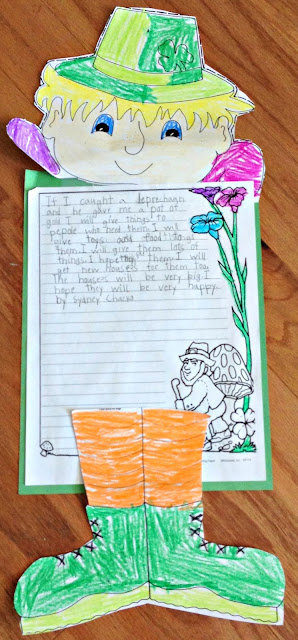 If I caught a leprechaun
and he gave me a pot of
gold I will give things to
people who need thins I will
give toys and food to
them I will give them lots of
things. I hope them I will
get new housers for them too.
The housers will be very big. I
hope they will be very happy.
by Sydney